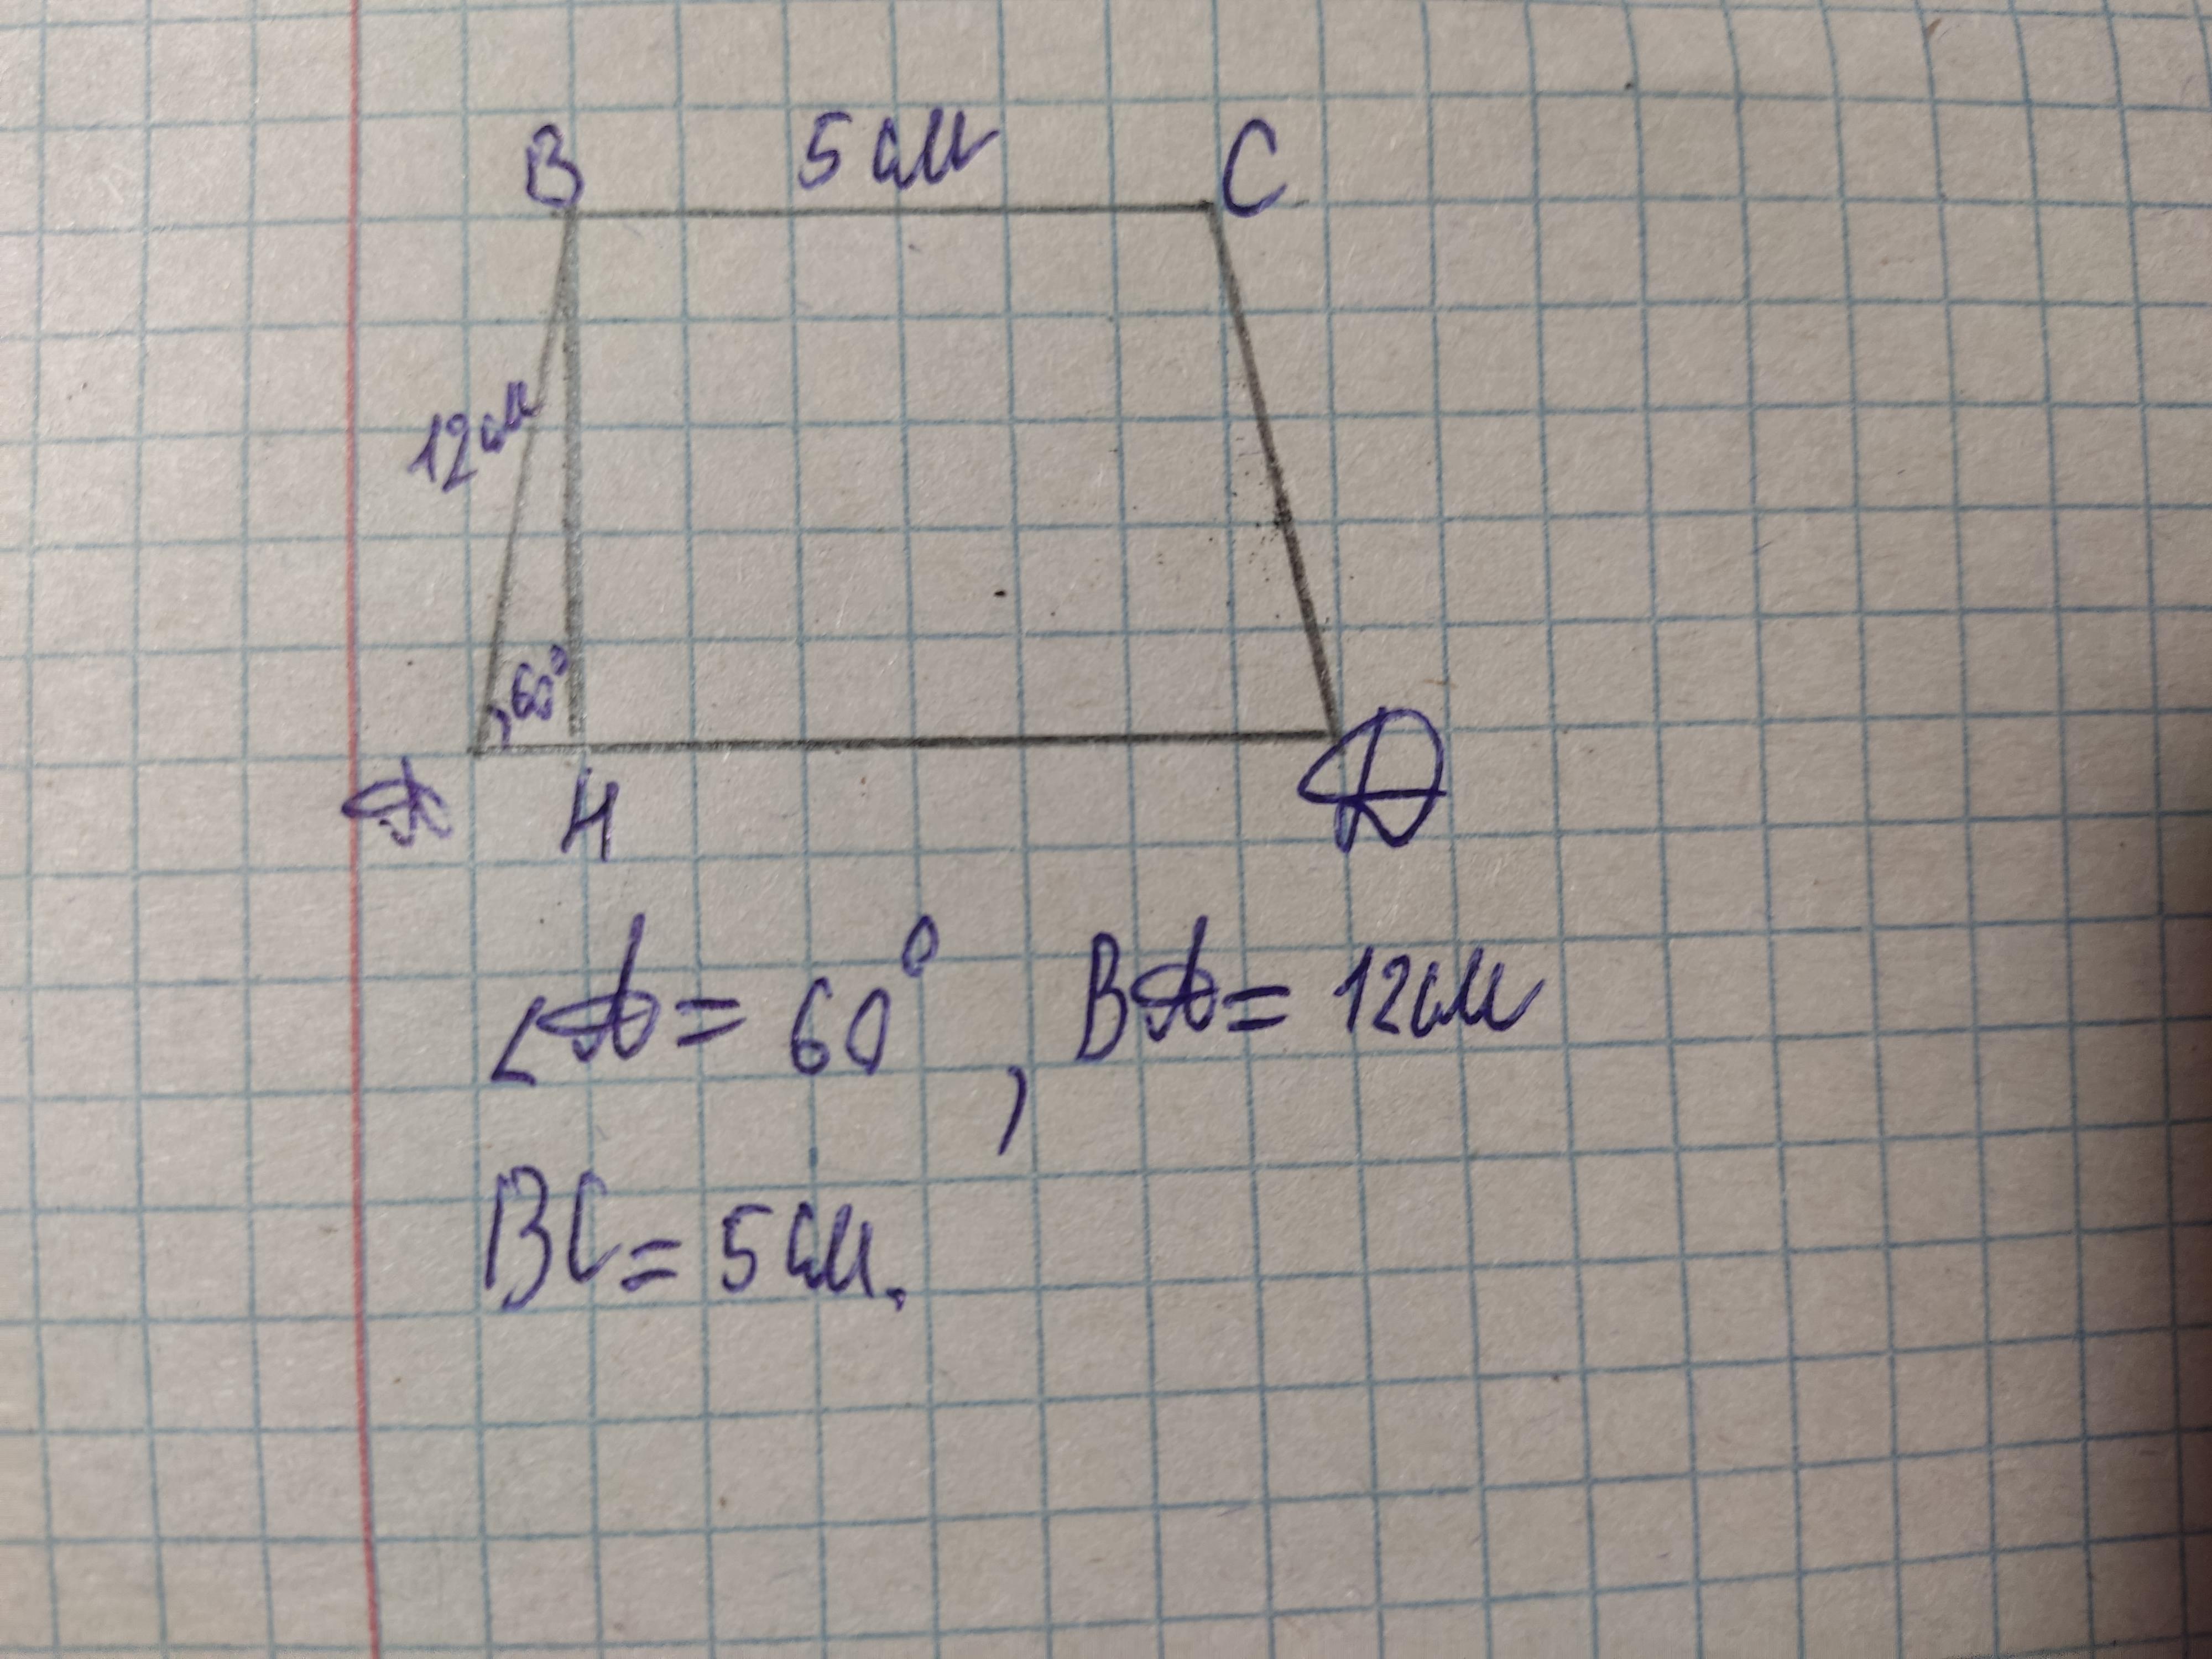 B 5 см C
12 см
60°
A H D
∠A = 60°, BA = 12 см
BC = 5 см.